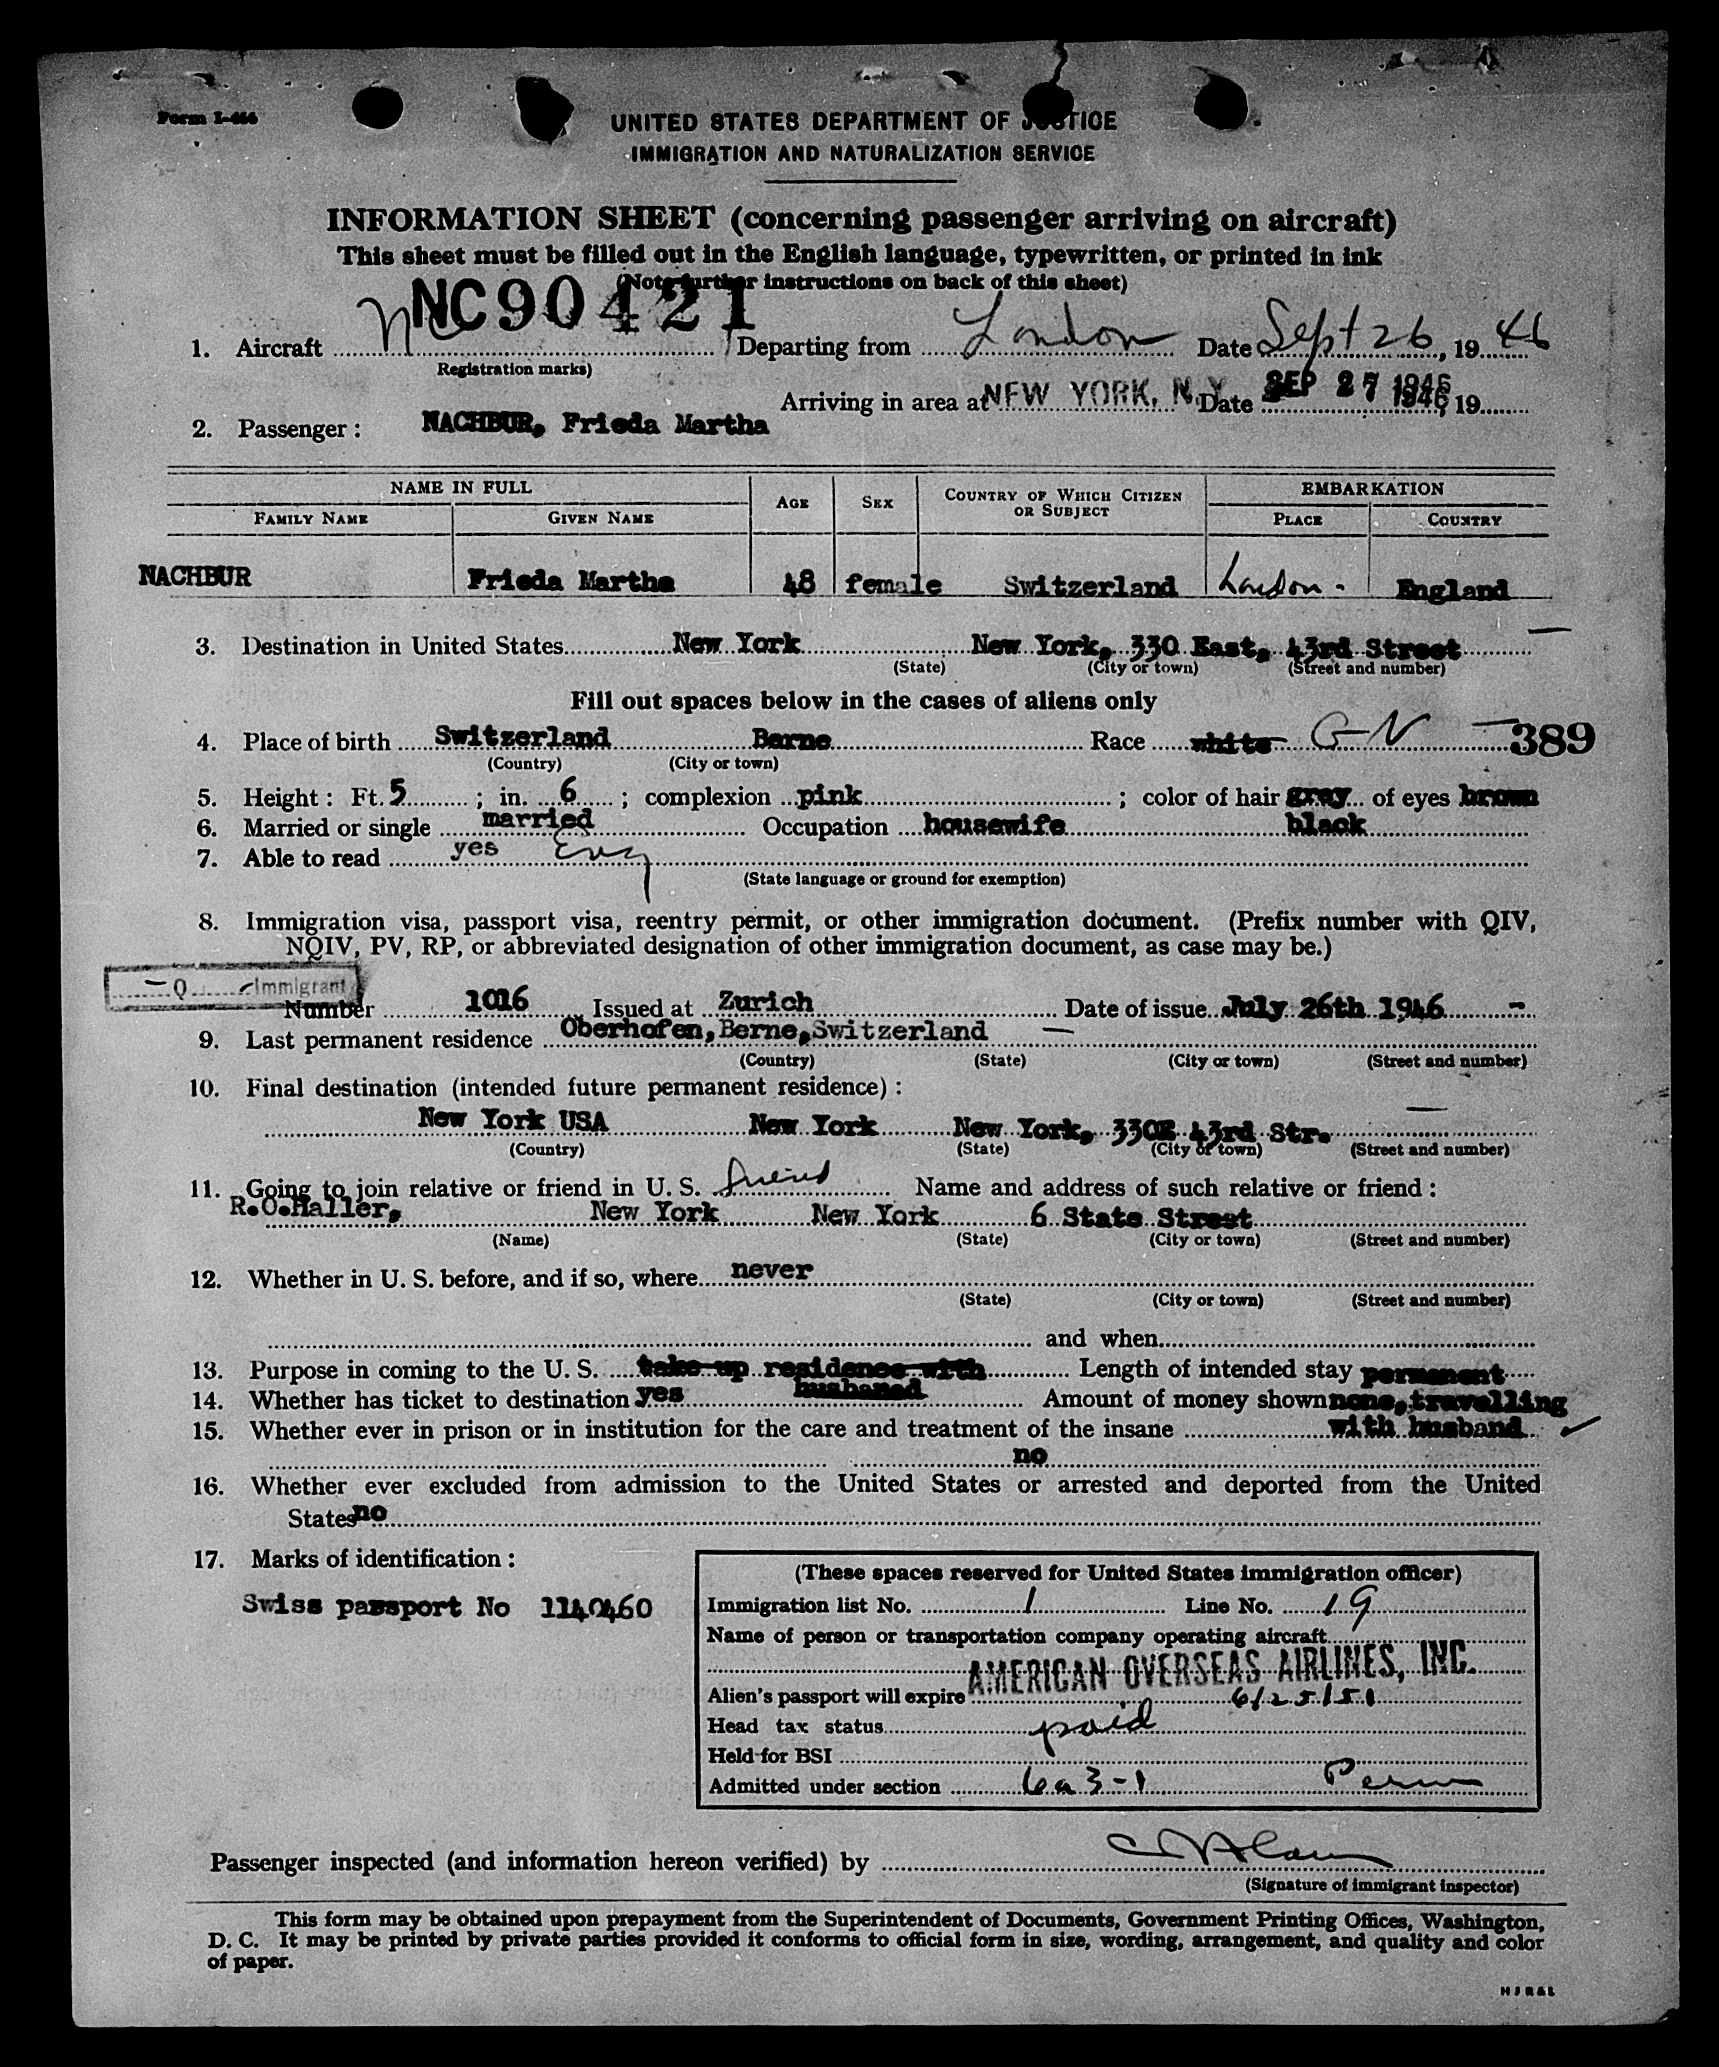 Form I-466
UNITED STATES DEPARTMENT OF JUSTICE
IMMIGRATION AND NATURALIZATION SERVICE
INFORMATION SHEET (concerning passenger arriving on aircraft)
This sheet must be filled out in the English language, typewritten, or printed in ink
(Note further instructions on back of this sheet)
NC90421
1. Aircraft NC Departing from London Date Sept 26, 1946
(Registration marks)
Arriving in area at NEW YORK, N.Y. Date SEP 27 1946 1946, 19
2. Passenger : NACHBUR, Frieda Martha
NAME IN FULL AGE SEX COUNTRY OF WHICH CITIZEN OR SUBJECT EMBARKATION
FAMILY NAME GIVEN NAME PLACE COUNTRY
NACHBUR Frieda Martha 48 female Switzerland London - England
3. Destination in United States New York New York, 330 East, 43rd Street
(State) (City or town) (Street and number)
Fill out spaces below in the cases of aliens only
4. Place of birth Switzerland Berne Race white G-N 389
(Country) (City or town)
5. Height : Ft. 5 ; in. 6 ; complexion pink ; color of hair gray of eyes brown
6. Married or single married Occupation housewife black
7. Able to read yes Eng
(State language or ground for exemption)
8. Immigration visa, passport visa, reentry permit, or other immigration document. (Prefix number with QIV,
NQIV, PV, RP, or abbreviated designation of other immigration document, as case may be.)
Q Immigrant
Number 1016 Issued at Zurich Date of issue July 26th 1946
9. Last permanent residence Oberhofen, Berne, Switzerland
(Country) (State) (City or town) (Street and number)
10. Final destination (intended future permanent residence) :
New York USA New York New York, 330E 43rd Str.
(Country) (State) (City or town) (Street and number)
11. Going to join relative or friend in U. S. friend Name and address of such relative or friend :
R.O.Haller, New York New York 6 State Street
(Name) (State) (City or town) (Street and number)
12. Whether in U. S. before, and if so, where never
(State) (City or town) (Street and number)
and when
13. Purpose in coming to the U. S. take up residence with Length of intended stay permanent
husbaned
14. Whether has ticket to destination yes Amount of money shown none, travelling
15. Whether ever in prison or in institution for the care and treatment of the insane with husband
no
16. Whether ever excluded from admission to the United States or arrested and deported from the United
States no
17. Marks of identification :
Swiss passport No 1140460
(These spaces reserved for United States immigration officer)
Immigration list No. 1 Line No. 19
Name of person or transportation company operating aircraft
AMERICAN OVERSEAS AIRLINES, INC.
Alien's passport will expire 6/25/51
Head tax status paid
Held for BSI
Admitted under section 6a3-1 Perm
Passenger inspected (and information hereon verified) by
(Signature of immigrant inspector)
This form may be obtained upon prepayment from the Superintendent of Documents, Government Printing Offices, Washington,
D. C. It may be printed by private parties provided it conforms to official form in size, wording, arrangement, and quality and color
of paper.